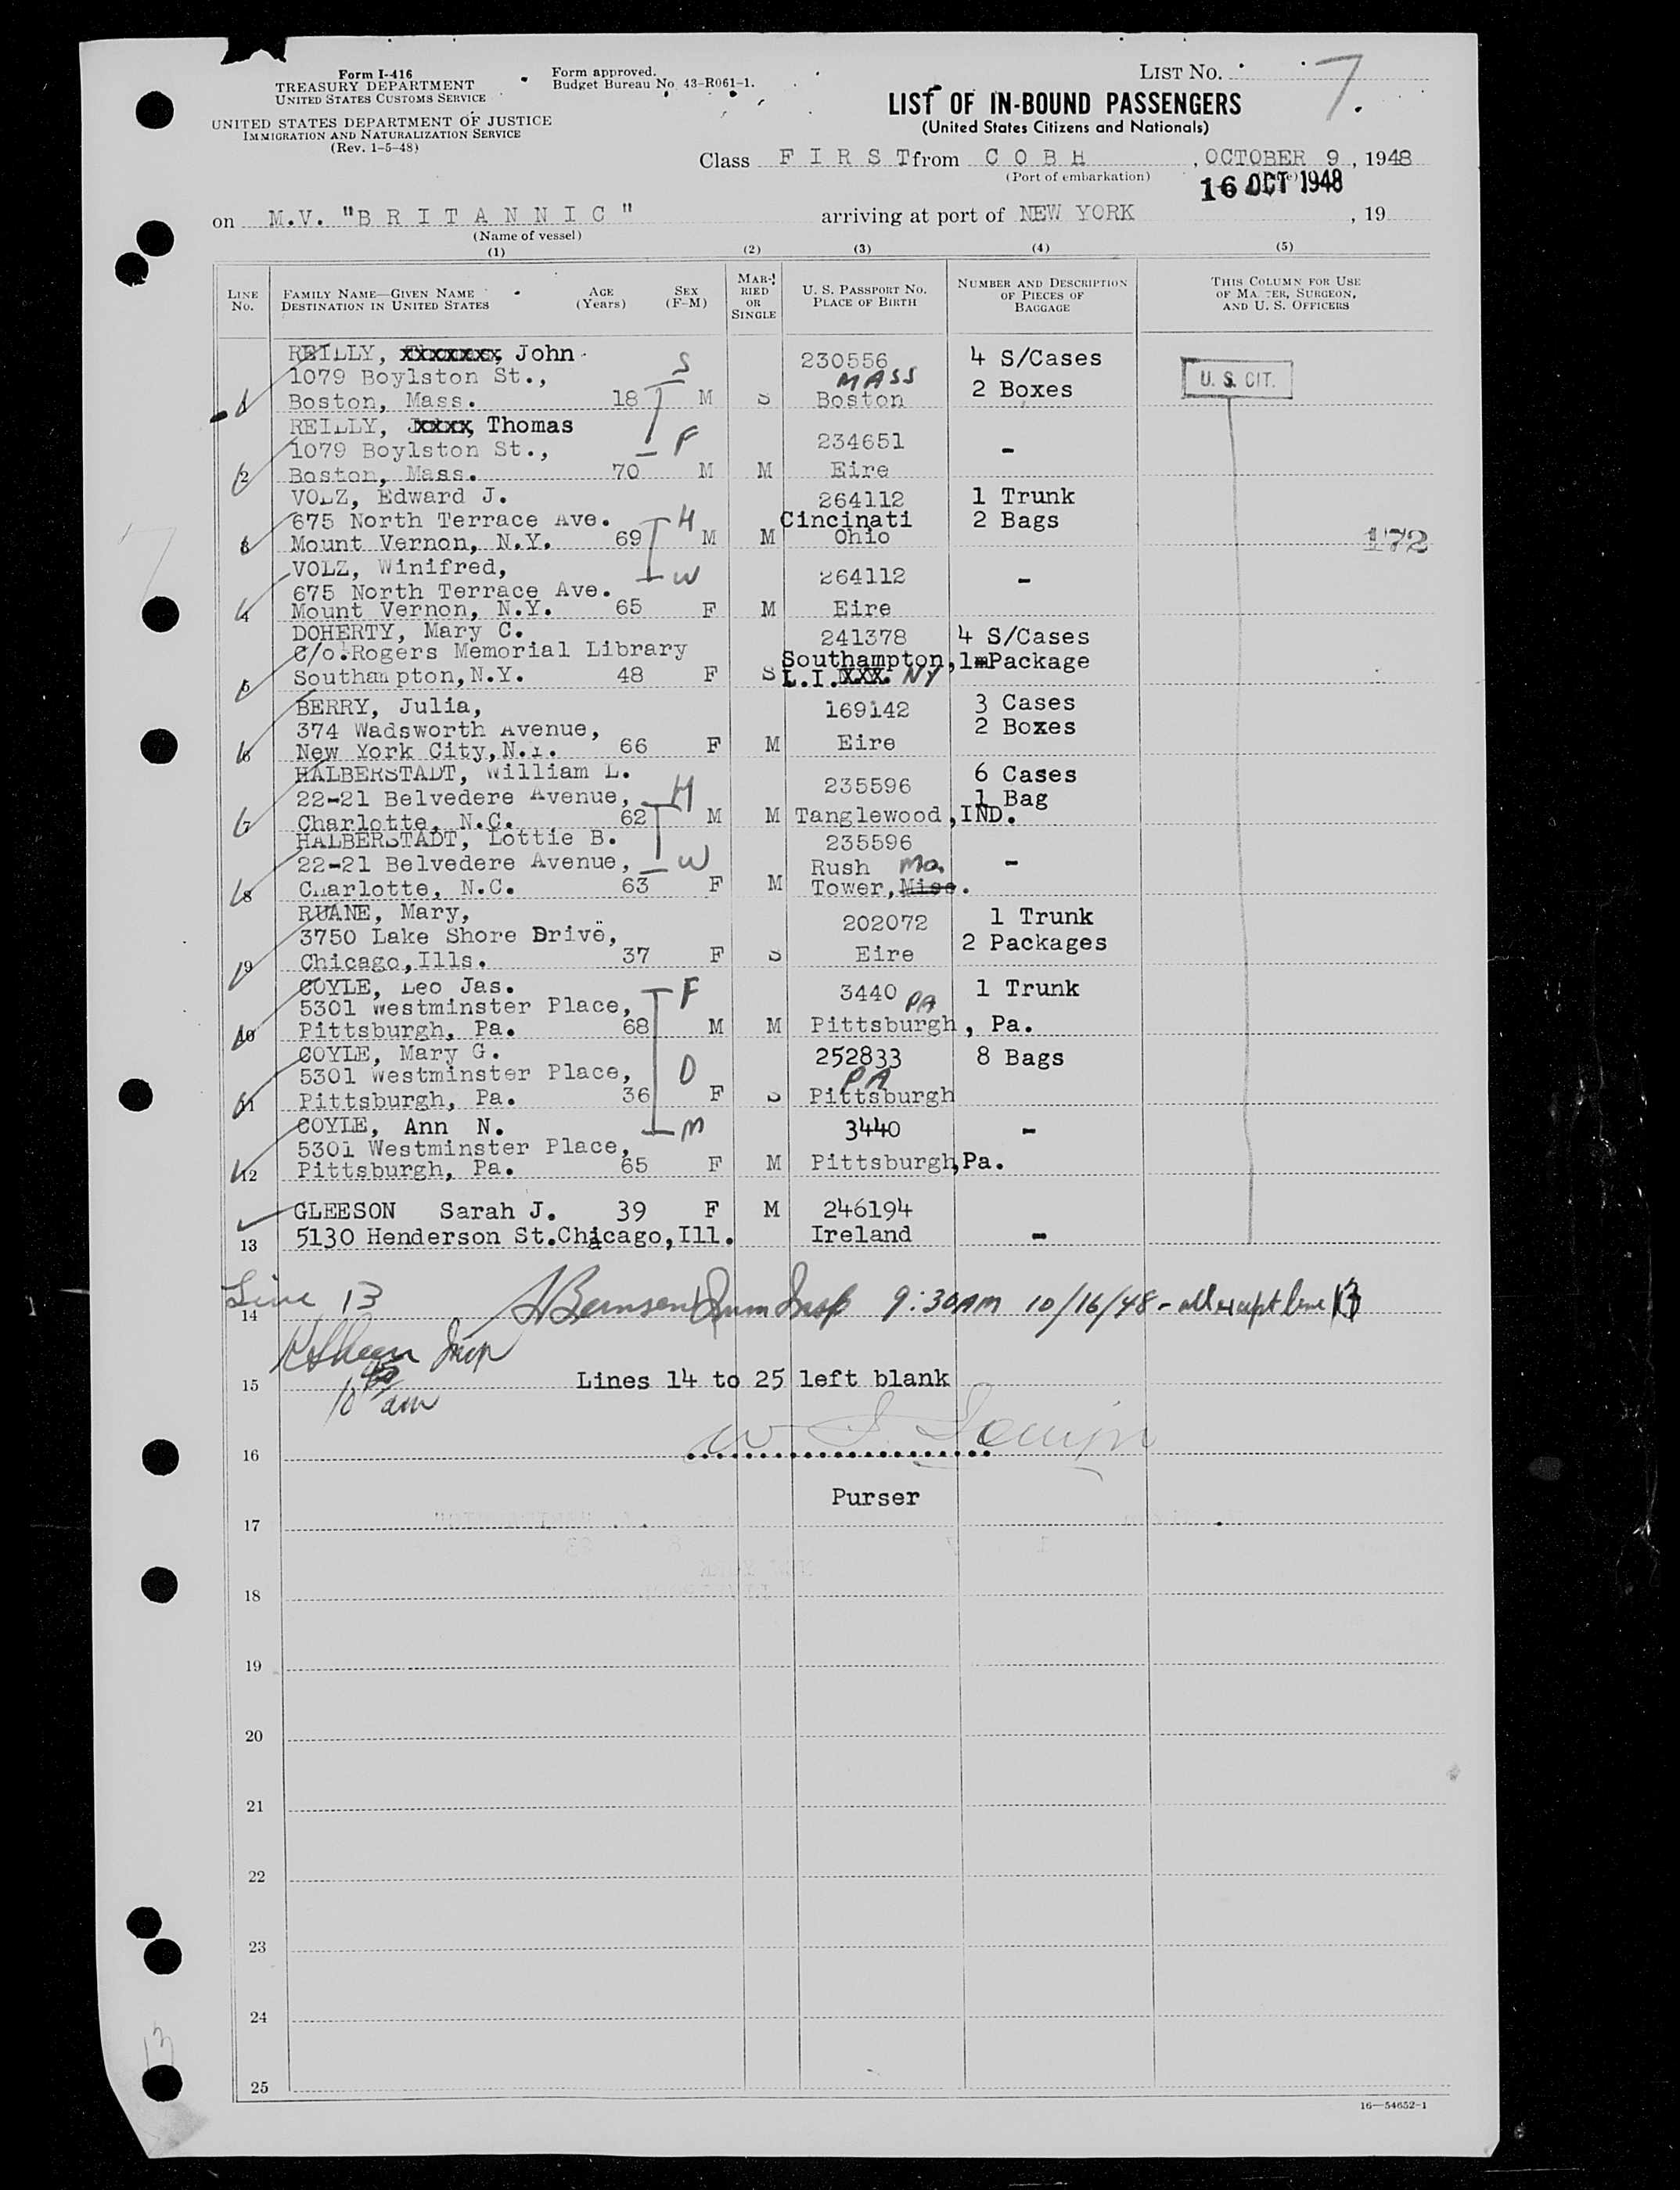 Form I-416
TREASURY DEPARTMENT
UNITED STATES CUSTOMS SERVICE
UNITED STATES DEPARTMENT OF JUSTICE
IMMIGRATION AND NATURALIZATION SERVICE
(Rev. 1-5-48)
Form approved.
Budget Bureau No. 43-R061-1.
LIST No. 7.
LIST OF IN-BOUND PASSENGERS
(United States Citizens and Nationals)
Class F I R S T from C O B H , OCTOBER 9 , 1948
(Port of embarkation)
16 OCT 1948
on M.V. "B R I T A N N I C" arriving at port of NEW YORK , 19
(Name of vessel)
(1) (2) (3) (4) (5)
LINE No.
FAMILY NAME—GIVEN NAME
DESTINATION IN UNITED STATES
AGE (Years)
SEX (F-M)
MARRIED OR SINGLE
U. S. PASSPORT NO.
PLACE OF BIRTH
NUMBER AND DESCRIPTION OF PIECES OF BAGGAGE
THIS COLUMN FOR USE OF MASTER, SURGEON, AND U. S. OFFICERS
REILLY, John S 230556 4 S/Cases
1079 Boylston St., MASS 2 Boxes U. S. CIT.
1 Boston, Mass. 18 M S Boston
REILLY, Thomas
1079 Boylston St., F 234651 -
2 Boston, Mass. 70 M M Eire
VOLZ, Edward J. 264112 1 Trunk
675 North Terrace Ave. H Cincinati 2 Bags
3 Mount Vernon, N.Y. 69 M M Ohio 172
VOLZ, Winifred,
675 North Terrace Ave. W 264112 -
4 Mount Vernon, N.Y. 65 F M Eire
DOHERTY, Mary C. 241378 4 S/Cases
C/o.Rogers Memorial Library Southampton, 1 Package
5 Southampton,N.Y. 48 F S L.I. XXX. NY
BERRY, Julia, 169142 3 Cases
374 Wadsworth Avenue, 2 Boxes
6 New York City,N.Y. 66 F M Eire
HALBERSTADT, William L. 235596 6 Cases
22-21 Belvedere Avenue, H 1 Bag
7 Charlotte, N.C. 62 M M Tanglewood,IND.
HALBERSTADT, Lottie B. 235596
22-21 Belvedere Avenue, W Rush Mo. -
8 Charlotte, N.C. 63 F M Tower, Miss.
RUANE, Mary, 202072 1 Trunk
3750 Lake Shore Drive, 2 Packages
9 Chicago,Ills. 37 F S Eire
COYLE, Leo Jas. F 3440 1 Trunk
5301 Westminster Place, PA
10 Pittsburgh, Pa. 68 M M Pittsburgh, Pa.
COYLE, Mary G. 252833 8 Bags
5301 Westminster Place, D PA
11 Pittsburgh, Pa. 36 F S Pittsburgh
COYLE, Ann N. M 3440 -
5301 Westminster Place,
12 Pittsburgh, Pa. 65 F M Pittsburgh,Pa.
GLEESON Sarah J. 39 F M 246194
13 5130 Henderson St.Chicago,Ill. Ireland -
Line 13
14 9:30AM 10/16/48 - all except line 13
Insp
15 Lines 14 to 25 left blank
10 am
16
Purser
17
18
19
20
21
22
23
24
25
13
16—54652-1